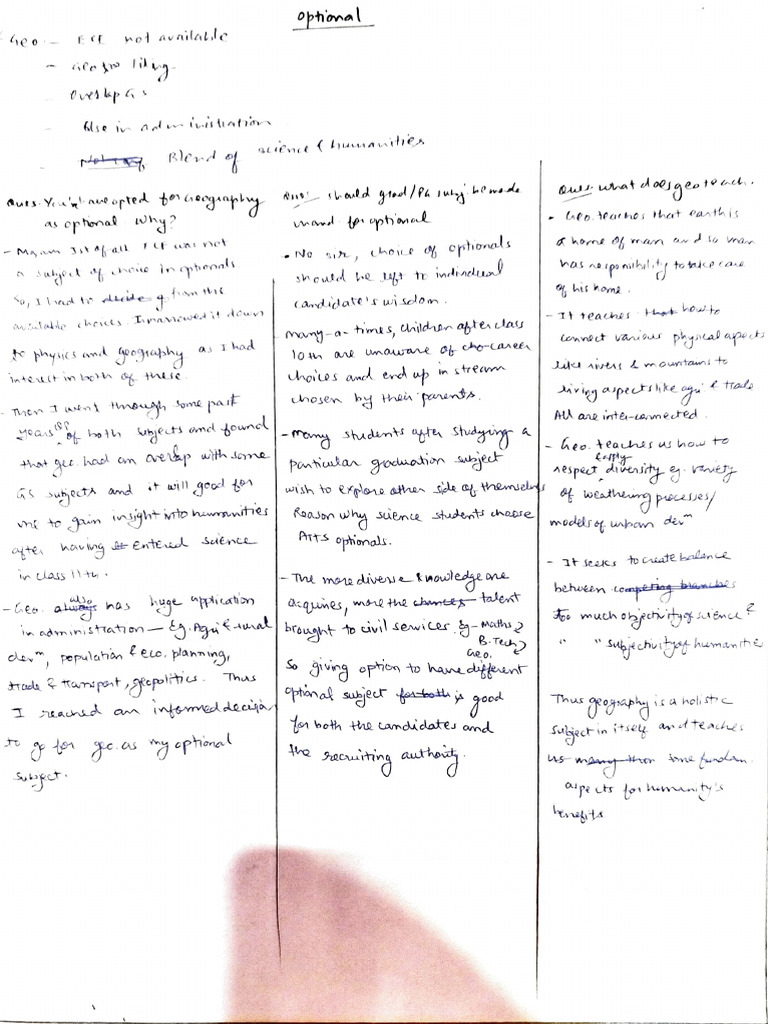 Optional
Geo - ECE not available
- Geo liking
- Overlap GS
- Use in administration
- Blend of science & humanities
Ques. You've opted for Geography
as optional why?
- Ma'am 1st of all ECE was not
a subject of choice in optionals
So, I had to decide from the
available choices. I narrowed it down
to physics and geography as I had
interest in both of these.
- Then I went through some past
years of both subjects and found
that geo. had an overlap with some
GS subjects and it will good for
me to gain insight into humanities
after having entered science
in class 11th.
- Geo. also has huge application
in administration - Eg. Agri & rural
devm, population & eco. planning,
trade & transport, geopolitics. Thus
I reached an informed decision
to go for geo. as my optional
subject.
Ques: should grad/PG subj. be made
mand for optional
• No sir, choice of optionals
should be left to individual
candidate's wisdom.
Many-a-times, children after class
10th are unaware of career
choices and end up in stream
chosen by their parents.
- Many students after studying a
particular graduation subject
wish to explore other side of themselves
Reason why science students choose
Arts optionals.
- The more diverse knowledge one
acquires, more the chances talent
brought to civil services. Eg - Maths
B.Tech
Geo.
So giving option to have different
optional subject for both is good
for both the candidates and
the recruiting authority.
Ques. what does geo teach.
• Geo. teaches that earth is
a home of man and so man
has responsibility to take care
of his home.
- It teaches that how to
connect various physical aspects
like rivers & mountains to
living aspects like agri & trade
All are inter-connected.
- Geo. teaches us how to
respect & apply diversity eg. variety
of weathering processes/
models of urban devm
- It seeks to create balance
between competing branches
too much objectivity of science &
" " subjectivity of humanities
Thus geography is a holistic
subject in itself and teaches
us many than some fundam.
aspects for humanity's
benefits